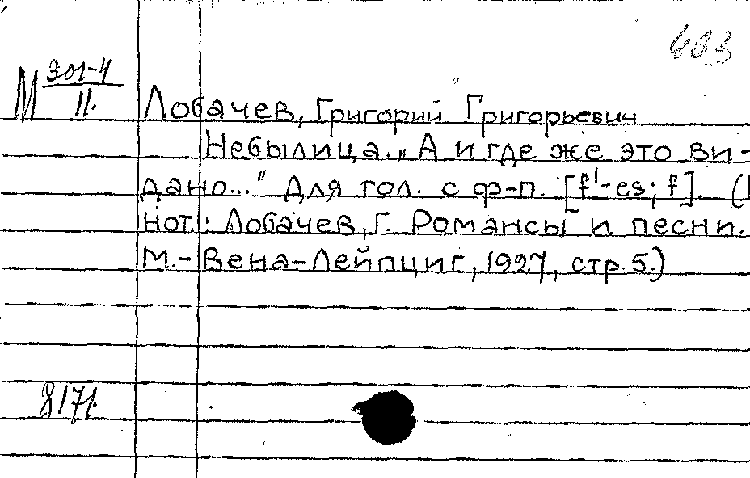 403
М 901-4
11.
Лобачев, Григорий Григорьевич
Небылица. „А и где же это ви-
дано..." Для гол. с ф-п. [f'-es; f]. (
нот.: Лобачев, Г. Романсы и песни.
М.-Вена-Лейпциг, 1927, стр. 5.)
8171.